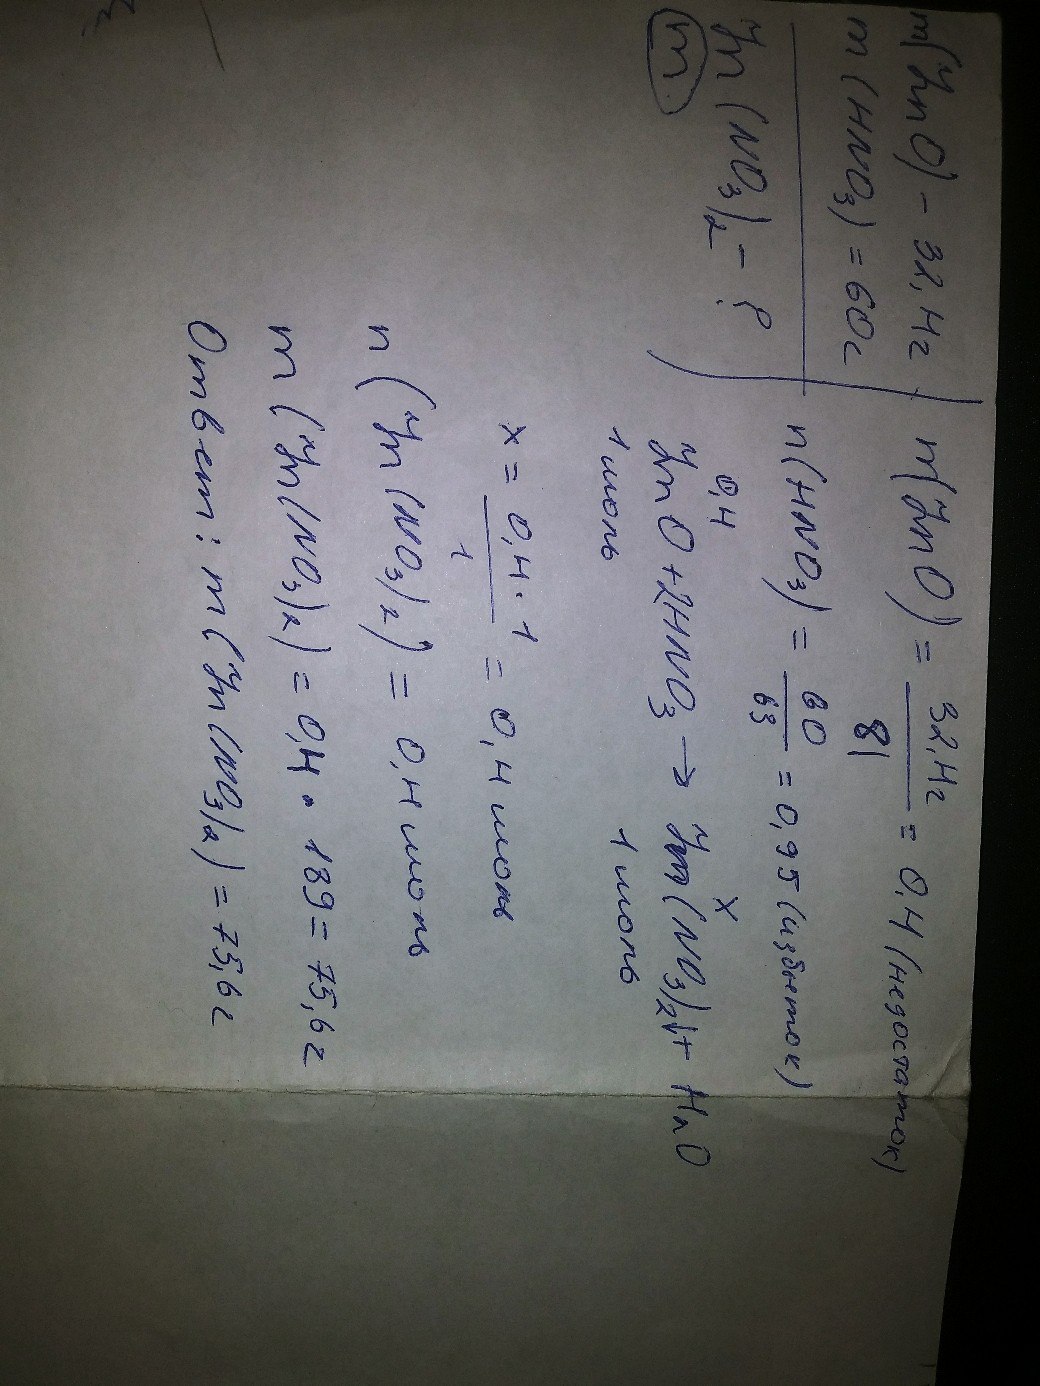 m(ZnO) - 32,4г
m(HNO₃) = 60г
Zn(NO₃)₂ - ?
m
m(ZnO) = 32,4г / 81 = 0,4 (недостаток)
n(HNO₃) = 60 / 63 = 0,95 (избыток)
0,4 x
ZnO + 2HNO₃ → Zn(NO₃)₂↓ + H₂O
1 моль 1 моль
x = 0,4 · 1 / 1 = 0,4 моль
n(Zn(NO₃)₂) = 0,4 моль
m(Zn(NO₃)₂) = 0,4 · 189 = 75,6г
Ответ: m(Zn(NO₃)₂) = 75,6г